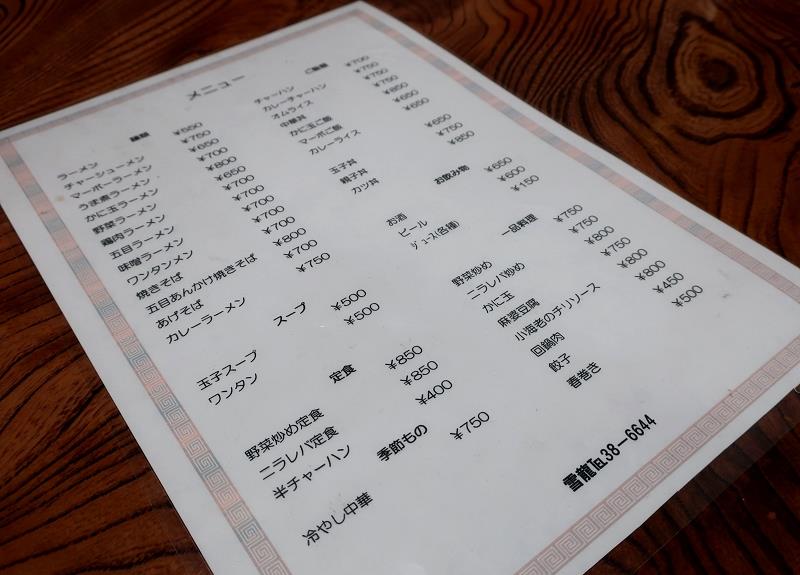 メニュー
麺類
ラーメン
チャーシューメン
マーボーラーメン
うま煮ラーメン
かに玉ラーメン
野菜ラーメン
鶏肉ラーメン
五目ラーメン
味噌ラーメン
ワンタンメン
焼きそば
五目あんかけ焼きそば
あげそば
カレーラーメン
¥550
¥750
¥650
¥700
¥800
¥650
¥700
¥700
¥700
¥700
¥800
¥700
¥750
スープ
玉子スープ ¥500
ワンタン ¥500
定食
野菜炒め定食 ¥850
ニラレバ定食 ¥850
半チャーハン ¥400
季節もの
冷やし中華 ¥750
ご飯類
チャーハン
カレーチャーハン
オムライス
中華丼
かに玉ご飯
マーボご飯
カレーライス
¥700
¥750
¥750
¥850
¥650
¥650
玉子丼 ¥650
親子丼 ¥750
カツ丼 ¥850
お飲み物
お酒 ¥650
ビール ¥600
ｼﾞｭｰｽ(各種) ¥150
一品料理
野菜炒め ¥750
ニラレバ炒め ¥750
かに玉 ¥800
麻婆豆腐 ¥750
小海老のチリソース ¥800
回鍋肉 ¥800
餃子 ¥450
春巻き ¥500
雲龍℡38－6644